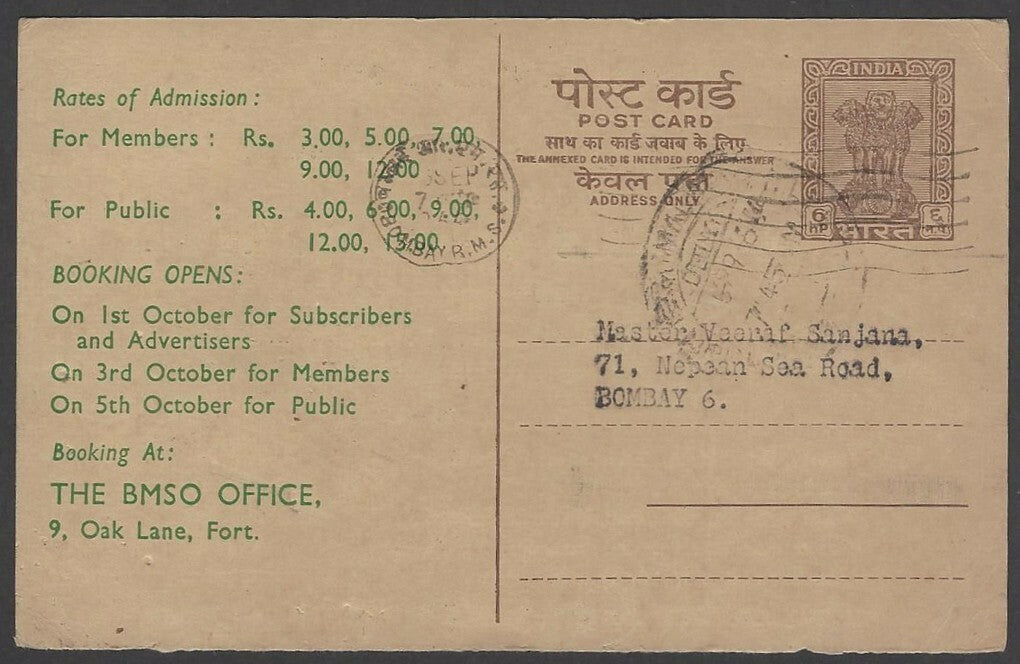 Rates of Admission :
For Members : Rs. 3.00, 5.00, 7.00,
9.00, 12.00
For Public : Rs. 4.00, 6.00, 9.00,
12.00, 15.00
BOOKING OPENS:
On 1st October for Subscribers
and Advertisers
On 3rd October for Members
On 5th October for Public
Booking At:
THE BMSO OFFICE,
9, Oak Lane, Fort.
पोस्ट कार्ड
POST CARD
साथ का कार्ड जवाब के लिए
THE ANNEXED CARD IS INTENDED FOR THE ANSWER
केवल पता
ADDRESS ONLY
INDIA
6 NP
भारत
SEP
BOMBAY R.M.S.
DELHI
Master Sanjana,
71, Nepean Sea Road,
BOMBAY 6.